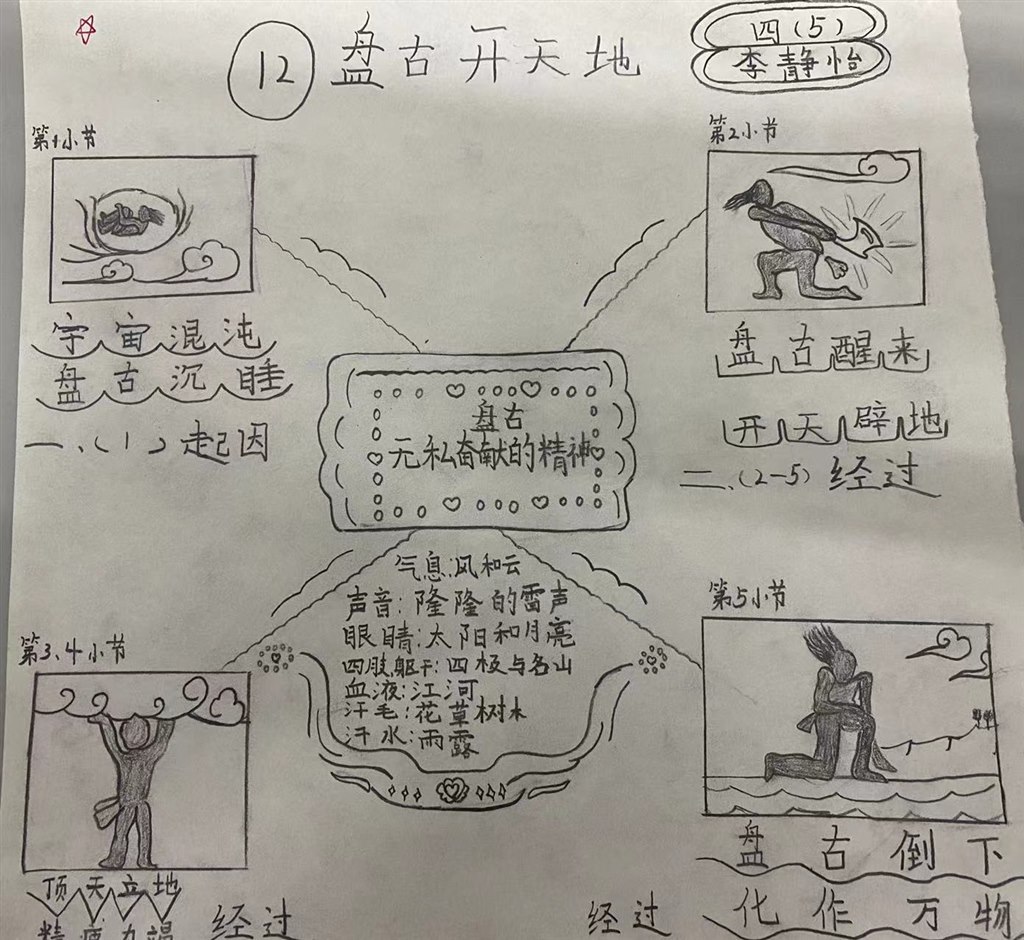 12 盘古开天地
四(5)
李静怡
第1小节
宇宙混沌
盘古沉睡
一、(1)起因
第2小节
盘古醒来
开天辟地
二、(2-5)经过
盘古
无私奋献的精神
气息:风和云
声音:隆隆的雷声
眼睛:太阳和月亮
四肢躯干:四极与名山
血液:江河
汗毛:花草树木
汗水:雨露
第3、4小节
顶天立地
精疲力竭
经过
第5小节
盘古倒下
化作万物
经过